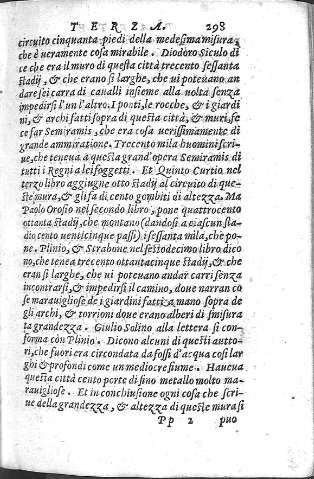 TERZA. 298
circuito cinquanta piedi della medesima misura,
che è ueramente cosa mirabile. Diodoro Siculo di
ce che era il muro di questa città trecento sessanta
stadij, & che erano sì larghe, che ui poteuano an
dare sei carra di caualli insieme alla uolta senza
impedirsi l'un l'altro. I ponti, le rocche, & i giardi
ni, & archi fatti sopra di questa città, & muri, fe
ce far Semiramis, che era cosa uerissimamente di
grande ammiratione. Trecento mila huomini scri-
ue, che teneua a questa grand'opera Semiramis di
tutti i Regni a lei soggetti. Et Quinto Curtio nel
terzo libro aggiugne otto stadij al circuito di que-
ste mura, & gli fa di cento gombiti di altezza. Ma
Paolo Orosio nel secondo libro, pone quattrocento
ottanta stadij, che montano (dandosi a ciascun sta-
dio cento uenticinque passi) sessanta mila, che po-
ne. Plinio, & Strabone nel sestodecimo libro dico
no, che tenea trecento ottantacinque stadij, & che
eran sì larghe, che ui poteuano andar carri senza
incontrarsi, & impedirsi il camino, doue narran co
se marauigliose de i giardini fatti a mano sopra de
gli archi, & torrioni doue erano alberi di smisura
ta grandezza. Giulio Solino alla lettera si con-
forma con Plinio. Dicono alcuni di questi autto-
ri, che fuori era circondata da fossi d'acqua così lar
ghi & profondi come un mediocre fiume. Haueua
questa città cento porte di fino metallo molto ma-
rauigliose. Et in conchiusione ogni cosa che scri-
ue della grandezza, & altezza di queste mura si
Pp 2 puo